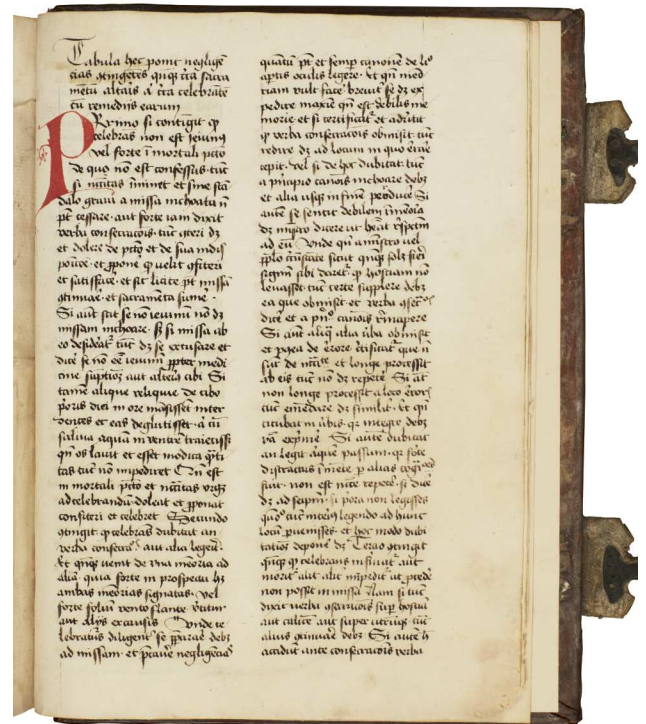 Tabula hec ponit negligē
cias ꝯtingētes quā cc̄a sacra
mētū altaris
cū remedijs earum
Prīmo si contigit ꝙ
celebras non est ieiunꝰ
vel forte ī mortali pctō
de quo nō est confessus tūc
si nccītas īminet et sine scā
dalo graui a missa inchoata nō
pt̄ cessare aut forte iam dixit
verba consecracōis tūc cōteri dꝫ
et dolere de pctō et de sua indis
et ꝓpone ꝙ velit ꝯfiteri
et satisface et sic licite pt̄ missā
ꝯtinuare et sacramēta sume
Si aut̄ scit se nō ieiunū nō dꝫ
missam inchoare si missa ab
eo desiderat̄ tūc dꝫ se excusare et
dicē se nō eē ieiunū ꝓpter medi
cine sūptiōꝫ aut alteriꝰ cibi Si
tamē alique reliquie de cibo
in ore māsissēt inter
dentes et eas deglutisset a cū
saliua aquā in ventrē traiecissꝫ
qn̄ os lauit et esset modica qn̄ti
tas tūc nō impediret Qn̄ est
in mortali pctō et nccītas vrgꝫ
ad celebrandū doleat et ꝓponat
confiteri et celebret Secundo
ꝯtingit ꝙ celebrās dubitat an
verba consecrōis aut alia legerit
Et qn̄qꝫ venit de vna meōria ad
aliā quia forte in prospectu hꝫ
ambas meōrias signatas vel
forte folia vento flante
aut alijs ex causis Vnde ce
lebraturus diligent̄ se ꝑparare debꝫ
ad missam et ꝑcauere negligēcias
quātū pt̄ et semꝑ canonē de libro
aptis oculis legere Et qn̄ med
vult facē breuit̄ se dꝫ ex
pedire maxīe qn̄ est debilis me
morie et si certificat̄ et aduertit
ꝙ verba consecracōis obmisit tūc
redire dꝫ ad locum in quo erraē
cepit Vel si de hoc dubitat tūc
a pīncipio canōis inchoare debꝫ
et alia vsqꝫ in finem ꝑducere Si
autē se sentit debilem ī meōia
dꝫ mīstro dicere vt heāt rēspectū
ad eū Vnde qn̄ a ministro uel
ppl̄o
signū sibi daret̄ ꝙ hostiam nō
leuasset tūc certe supplere debꝫ
ea que obmisit et verba ꝯsecr̄
dicē et a pn̄o canōis
Si aut̄ aliq̄ alia v̄ba obmisit
et postea de errore ctīficat̄ que nō
sūt de nccītate et longe processit
ab eis tūc nō dꝫ repetē Si at̄
non longe processit a loco erroris
tūc emēdare dꝫ similit̄ et qn̄
titubat in v̄bis qꝫ integre debꝫ
exprimē Si autē dubitat
an legit aliquē passum qꝫ fote
distractus ī mēte ꝑ alias cogitōes
fuit non est ncc̄e repetē
dꝫ ad seipm̄ si p̄ora non legisses
quō tūc medio legendo ad hunc
locū ꝑuenisses et hoc modo dubi
tatiōꝫ deponē dꝫ Tercio ꝯtingit
qn̄qꝫ ꝙ celebrans infirmat̄ aut
morit̄ aut alit̄ impedit̄ ut ꝓcedē
non posset in missa Nam si tūc
dixit verba ꝯsecracōis suꝑ hostiā
aut calicē aut super utrūqꝫ tūc
alius ꝯtinuare debꝫ Si autē h̄
accidit ante consecracōis verba